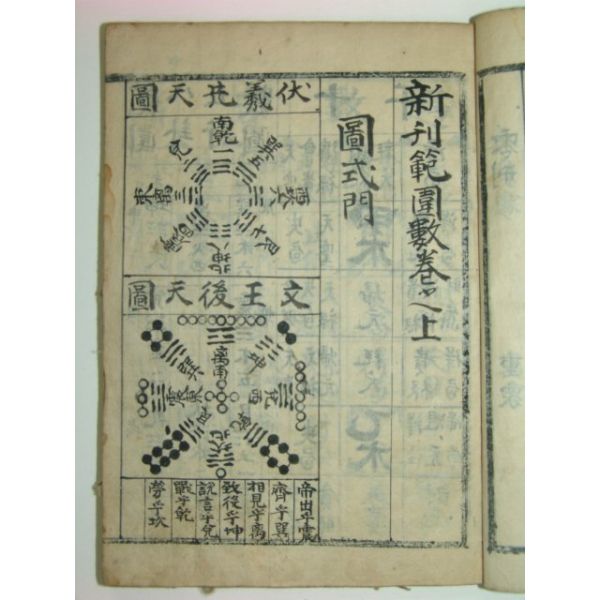 新刊範圍數卷之上
圖式門
伏羲先天圖
南乾一
兌二
東離三
巽五
西坎六
艮七
北坤八
文王後天圖
離南
坤
兌西
乾
坎北
艮
震東
巽
帝出乎震
齊乎巽
相見乎離
致役乎坤
說言乎兌
戰乎乾
勞乎坎